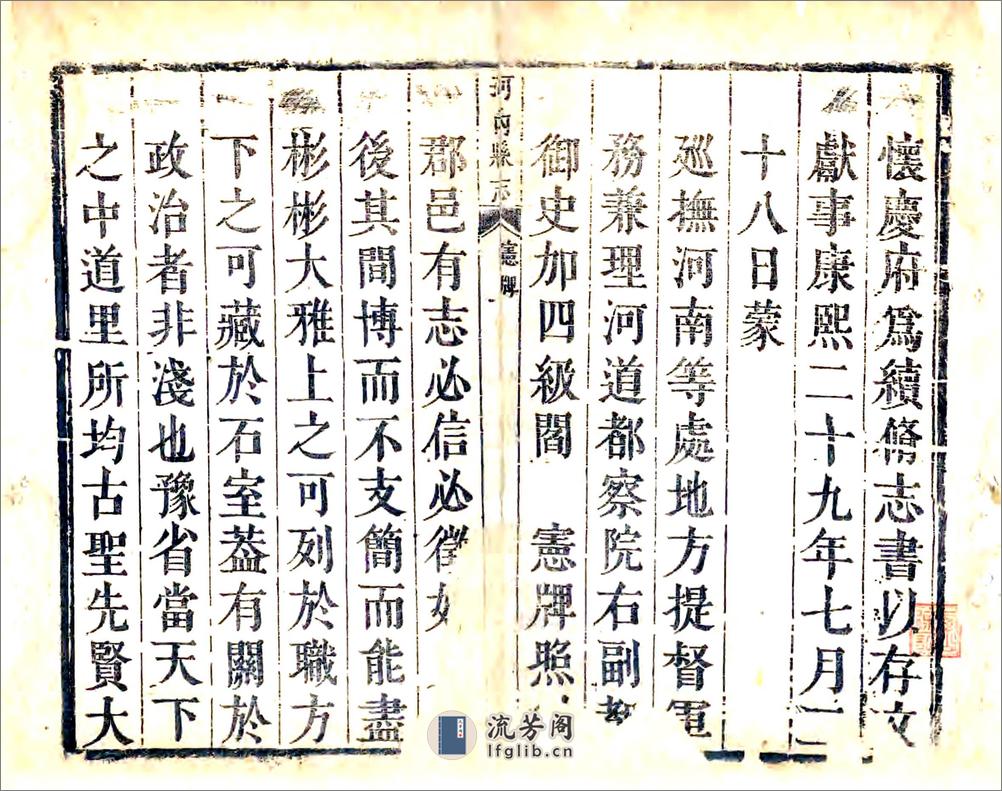 懷慶府爲續脩志書以存文
獻事康熙二十九年七月二
十八日蒙
廵撫河南等處地方提督軍
務兼理河道都察院右副
御史加四級閻　憲牌照
河內縣志　憲牌
郡邑有志必信必徵
後其間博而不支簡而能盡
彬彬大雅上之可列於職方
下之可藏於石室葢有關於
政治者非淺也豫省當天下
之中道里所均古聖先賢大
流芳阁
lfglib.cn